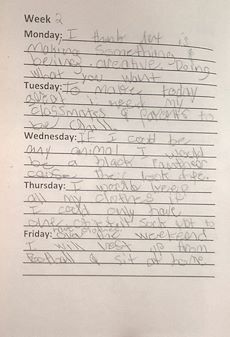 Week 2
Monday: I think art is
making something &
being creative. Doing
what you want
Tuesday: To make today
great I need my
classmates & parents to
be
Wednesday: If I could be
any animal I would
be a black panther
cause their look
Thursday: I would keep
all my clothes if
I could only have
one
Friday: over the weekend
I will rest up from
football & sit at home